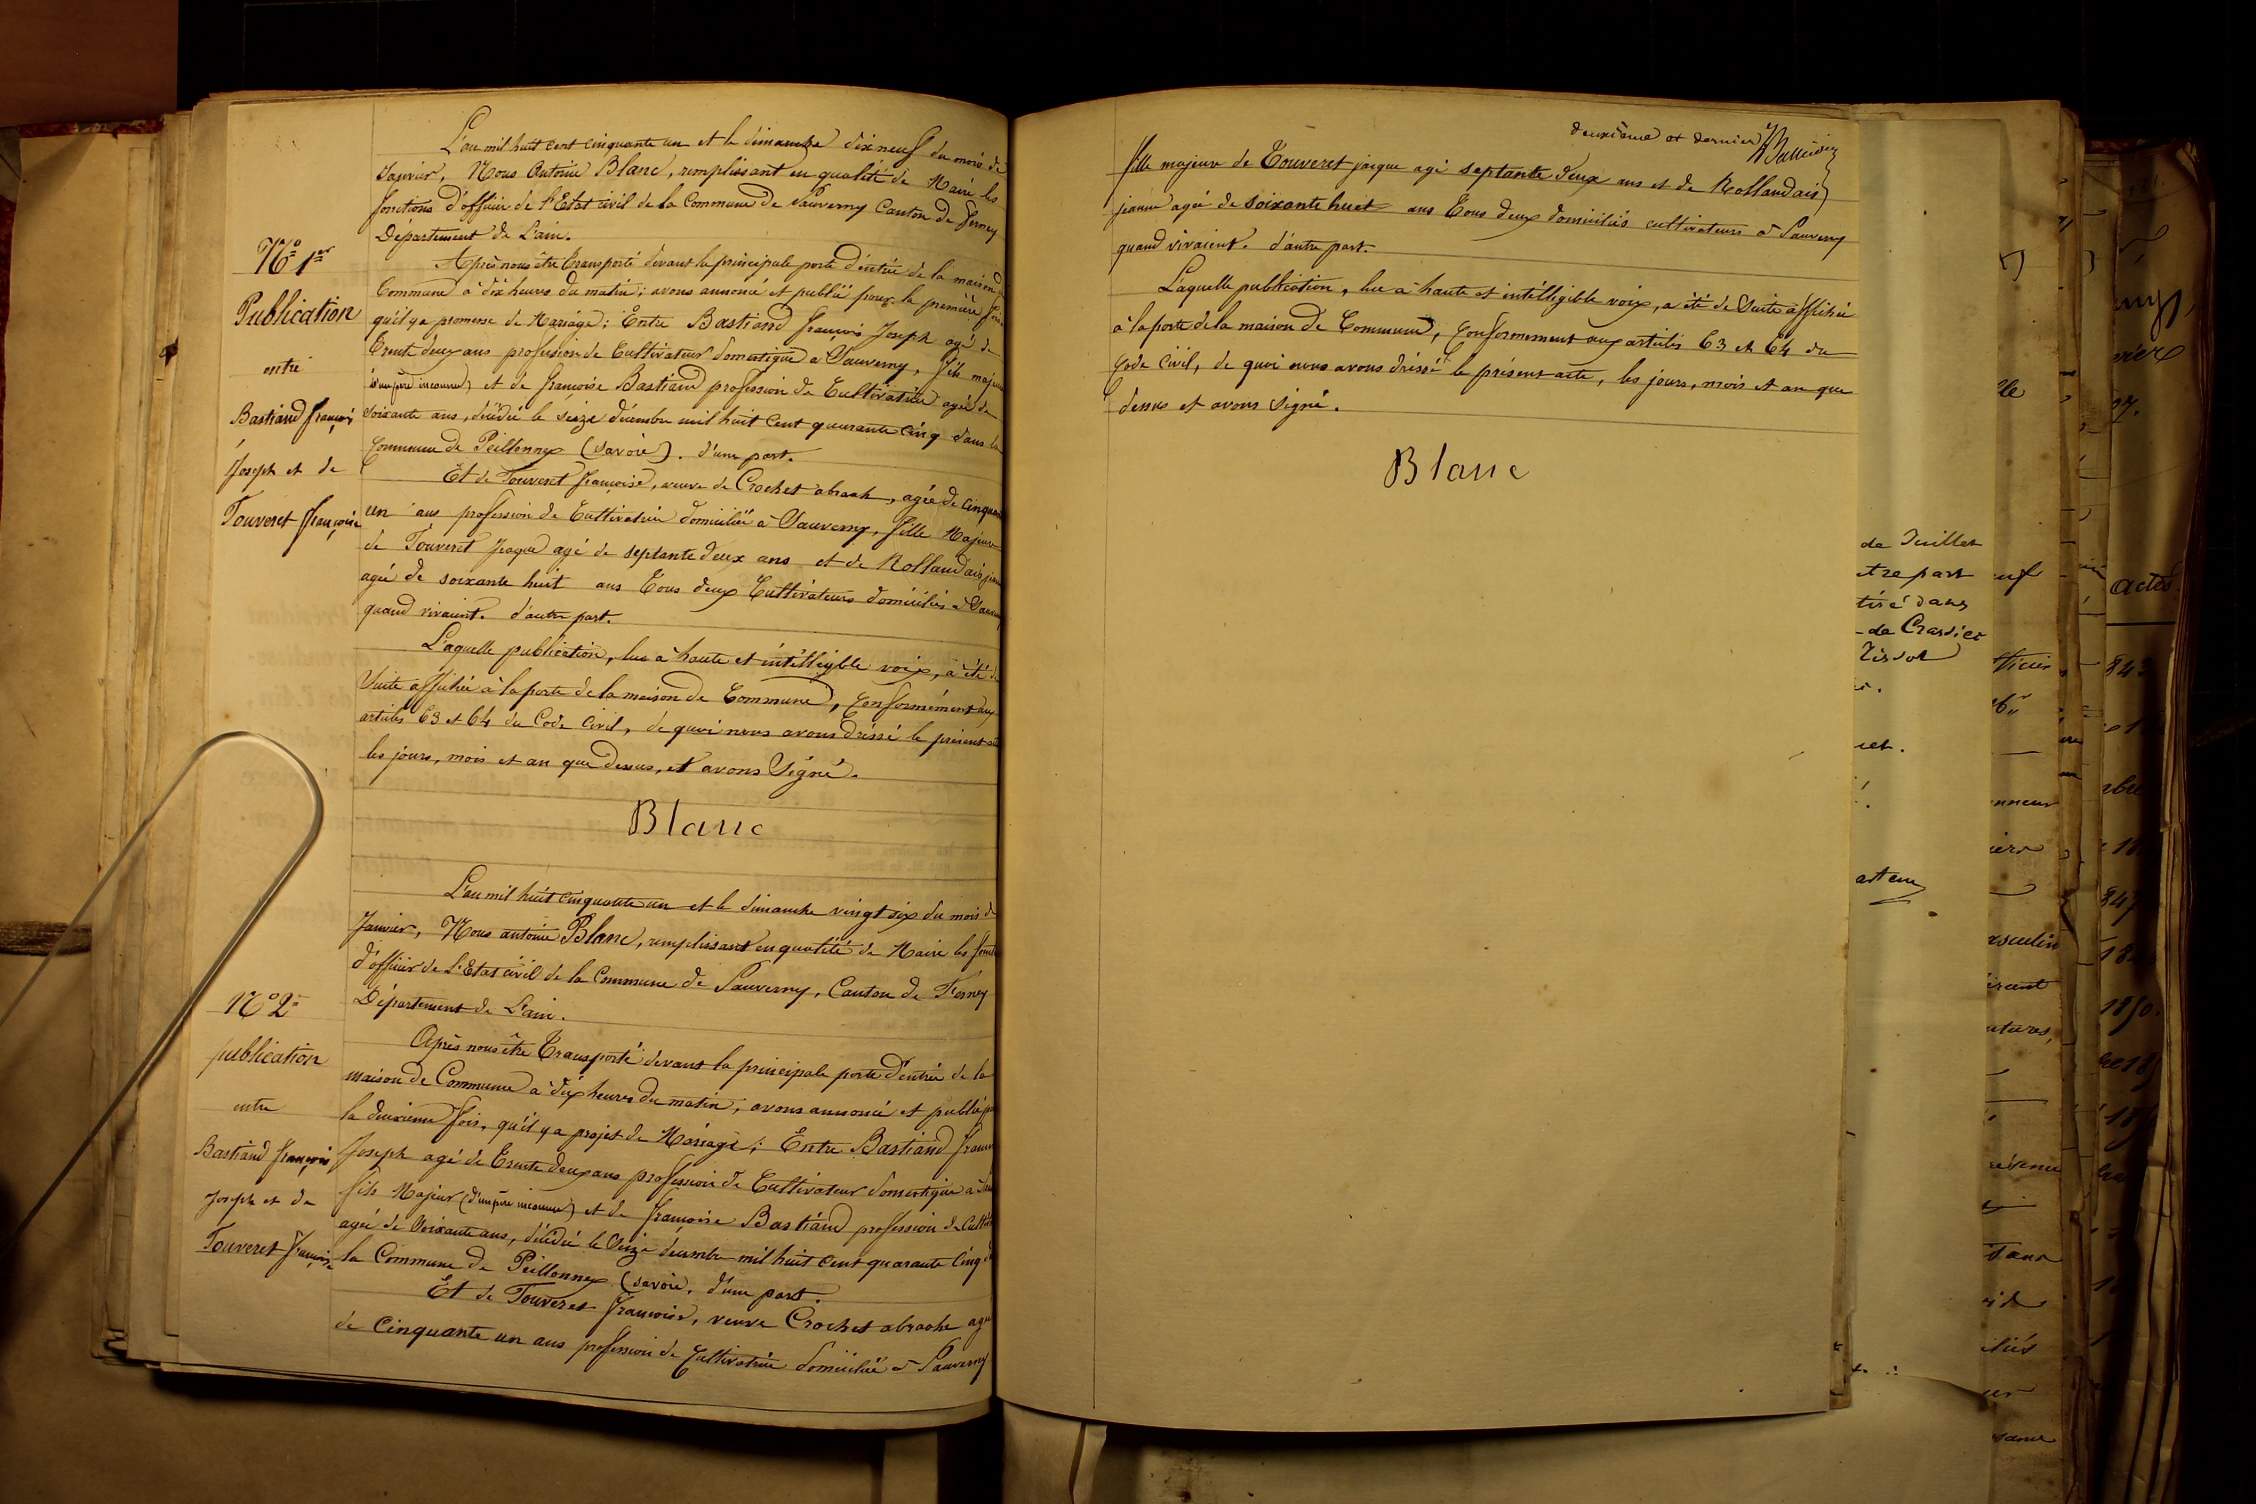 L'an mil huit cent cinquante un et le dimanche dix neuf du mois de
Janvier, Nous Antoine Blanc, remplissant en qualité de Maire les
fonctions d'officier de l'Etat civil de la Commune de Sauverny Canton de Ferney
Département de L'ain.
N° 1er
Après nous être transporté devant la principale porte d'entrée de la maison de
Commune à dix heures du matin; avons annoncé et publié pour la première fois
Publication
qu'il y a promesse de Mariage: Entre Bastiand françois Joseph agé de
Trente deux ans profession de Cultivateur domestique à Sauverny, fils majeur
entre
(d'un père inconnu) et de françoise Bastiand profession de Cultivatrice agée de
Bastiand françois
soixante ans, décédée le seize décembre mil huit cent quarante cinq dans la
Commune de Peillonnex (Savoie). d'une part.
Joseph et de
Et de Touveret françoise, veuve de Crochet abraah, agée de cinquante
Touveret françoise
un ans profession de Cultivatrice domiciliée à Sauverny, fille Majeure
de Touveret Jaque agé de septante deux ans et de Rollandais
agée de soixante huit ans Tous deux Cultivateurs domiciliés à Sauverny
quand vivaient. d'autre part.
Laquelle publication, lue à haute et intélligible voix, a été de
Suite affichée à la porte de la maison de Commune, Conformément aux
articles 63 et 64 du Code Civil, de quoi nous avons dréssé le présent
les jours, mois et an que dessus, et avons Signé.
Blanc
L'an mil huit cinquante un et le dimanche vingt six du mois de
Janvier, Nous antoine Blanc, remplissant en qualité de Maire les
d'officier de L'Etat civil de la Commune de Sauverny, Canton de Ferney
Département de L'ain.
N° 2e
Après nous être Transporté devant la principale porte d'entrée de la
publication
maison de Commune à dix heures du matin, avons annoncé et publié
entre
la deuxième fois, qu'il y a projet de Mariage; Entre Bastiand
Bastiand françois
Joseph agé de Trente deux ans profession de Cultivateur domestique à
Joseph et de
fils Majeur (d'un père inconnu) et de françoise Bastiand profession de
Touveret françoise
agée de Soixante ans, décédée le Seize décembre mil huit cent quarante Cinq
la Commune de Peillonnex (Savoie. d'une part.
Et de Touveret françoise, veuve Crochet abraahe
de Cinquante un ans profession de Cultivatrice domiciliée à Sauverny
deuxième et dernier
fille majeure de Touveret jacque agé septante deux ans et de Rollandais
jeanne agée de soixante huit ans Tous deux domiciliés cultivateurs à Sauverny
quand vivaient. d'autre part.
Laquelle publication, lue à haute et intélligible voix, a été de Suite affichée
à la porte de la maison de Commune, Conformement aux articles 63 et 64 du
Code Civil, de quoi nous avons dréssé le présent acte, les jours, mois et an que
dessus et avons Signé.
Blanc
de Juillet
tre part
dans
actes